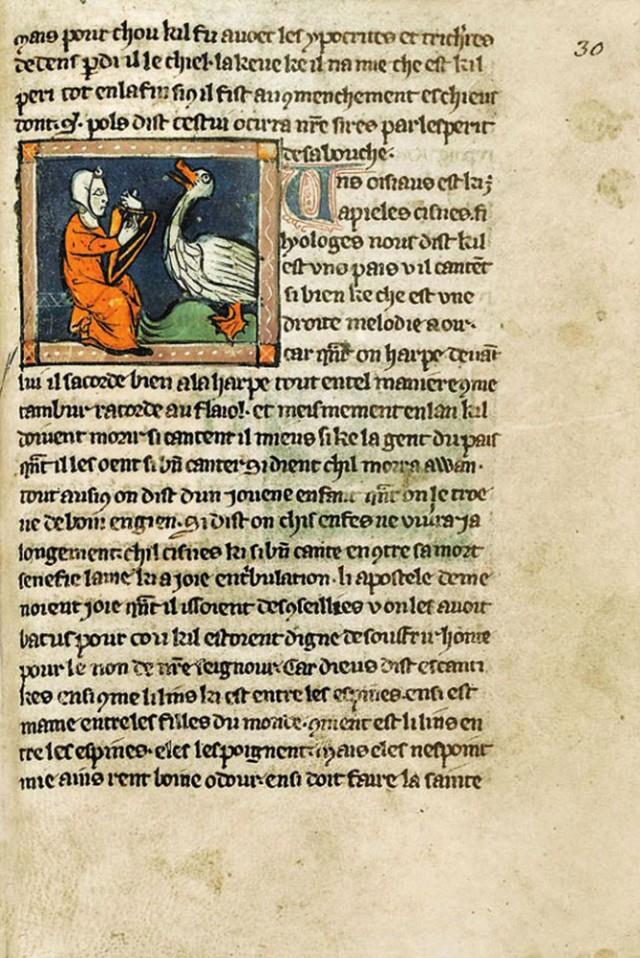 30
mais pour chou kil fu avoec les ypocrites et trich'res
dedens p'di il le chief. la keue ke il na mie che est kil
peri tot en la fin si 9 il fist au 9menchement es chieus
dont. s'. pols dist cestui ocirra nr̄e sires par lesperit
de sa bouche.
Uns oisiaus est ki ꝫ
apieles cisnes. fi
syologes nous dist kil
est vns pais v il cantēt
si bien ke che est vne
droite melodie a oir.
car qn̄t on harpe deuant
lui il sacorde bien a la harpe tout en tel maniere 9me
tambur racorde au flaiol. et meismement en lan kil
doiuent morir si cantent il mieus si ke la gent du pais
qn̄t il les oent si bn̄ canter si dient chil morra awan.
tout ausi 9 on dist dun jouene enfant qn̄t on le troe
ue de boin engien. si dist on chis enfes ne viura ja
longement. chil cisnes ki si bn̄ cante en 9tre sa mort
senefie lame ki a joie en t'bulation. li apostele deme
noient joie qn̄t il issoient des 9seillies v on les auoit
batus pour cou kil estoient digne de soufrir honte
pour le non de nr̄e seignour. Car dieus dist es canti
kes ensi 9me li lins ki est entre les espines. ensi est
mame entre les filles du monde. 9ment est li lins en
tre les espines. eles les poignent. mais eles nespoint
mie ains rent boine odour. ensi doit faire la sainte